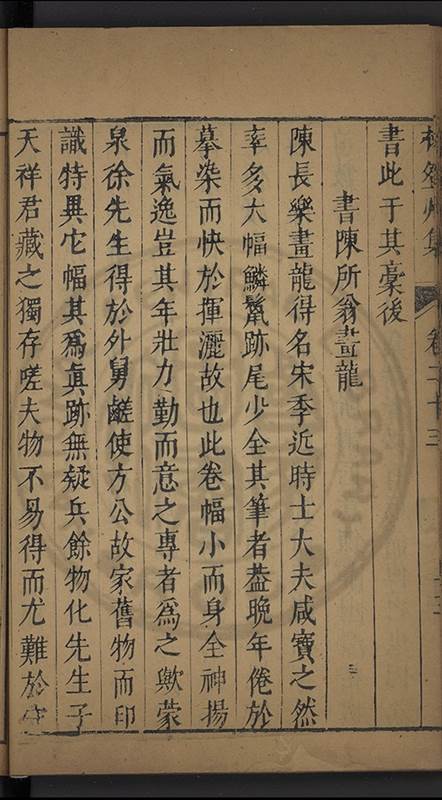 林登州集 卷二十三
書此于其藁後
書陳所翁畫龍
陳長樂畫龍得名宋季近時士大夫咸寶之然
率多大幅鱗鬛跡尾少全其筆者葢晚年倦於
摹染而快於揮灑故也此卷幅小而身全神揚
而氣逸豈其年壯力勤而意之專者爲之歟蒙
泉徐先生得於外舅鹺使方公故家舊物而印
識特異它幅其爲眞跡無疑兵餘物化先生子
天祥君藏之獨存嗟夫物不易得而尤難於守